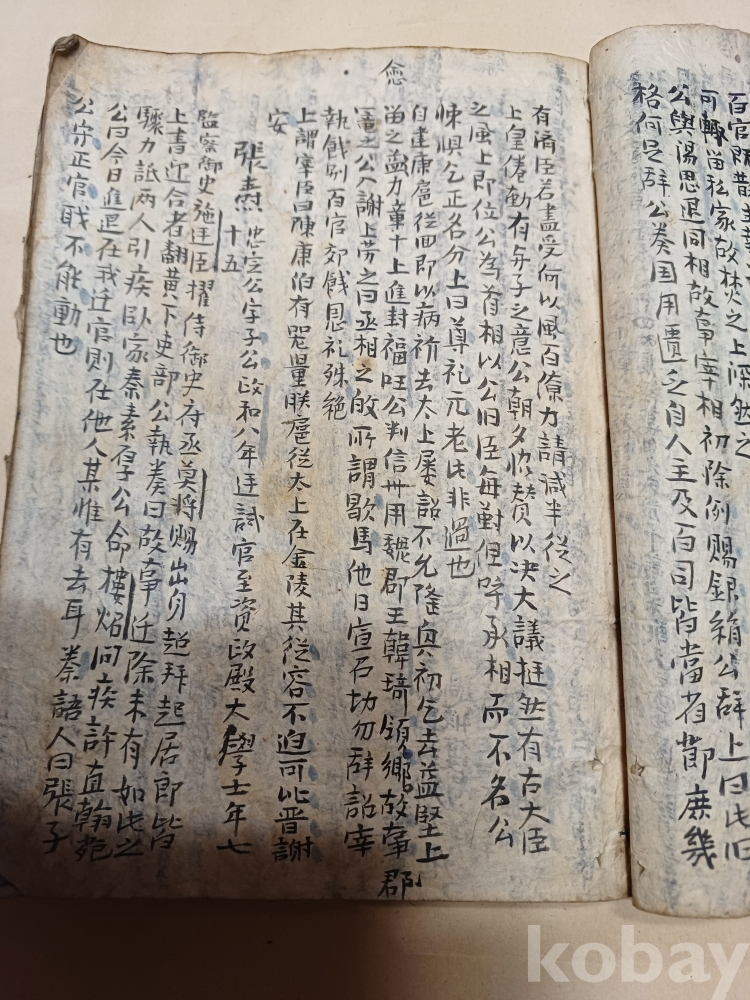 百官
可輙留私家故焚之上深然之
公與湯思退同相故事宰相初除例賜銀絹公辞上曰此旧
格何足辞公奏国用匱乏自人主及百司皆當省節庶幾
愈
有済臣若盡受何以風百僚力請减半從之
上皇倦勤有与子之意公朝夕賛以决大議挺然有古大臣
之風上即位公為首相以公旧臣每對但呼丞相而不名公
悚惧乞正名分上曰尊礼元老此非過也
自建康扈從回即以病祈去太上屡詔不允隆興初乞去益堅上
留之益力章十上進封福国公判信州用魏郡王韓琦領鄉故事郡
公入謝上劳之曰丞相之所謂歇馬他日宣召切勿辞詔宰
執餞别百官郊餞恩礼殊絶
上謂宰臣曰陳康伯有器量朕扈從太上在金陵其從容不迫可比晋謝
安
張燾 忠定公字子公政和八年廷試官至資政殿大學士年七
十五
監察御史施廷臣擢侍御史府丞莫将賜出身超拜起居郎皆
上書迎合者翻黄下吏部公執奏曰故事迁除未有如此之
驟力詆两人引疾卧家秦素厚公命樓炤问疾許直翰苑
公曰今日進退在我迁官則在他人某惟有去耳秦語人曰張子
公宗正官耶不能動也
kobay